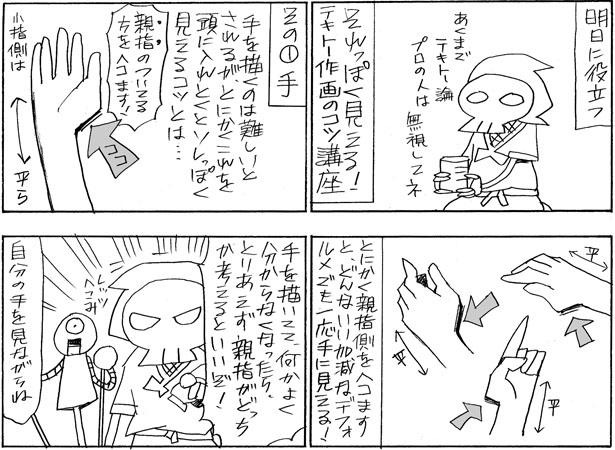 明日に役立つ
それっぽく見える!
テキトー作画のコツ講座
あくまで
テキトー論
プロの人は無視してネ
その①手
手を描くのは難しいと
されるがとにかくこれを
頭に入れとくとソレっぽく
見えるコツとは…
親指のついてる
方をヘコます!
ココ
小指側は
平ら
とにかく親指側をヘコます
と、どんないい加減なデフォ
ルメでも一応手に見える!
平
平
平
手を描いてて、何かよく
分からなくなったら、
とりあえず親指がどっち
か考えるといいぞ!
レッツ
へこみ
自分の手を見ながらね